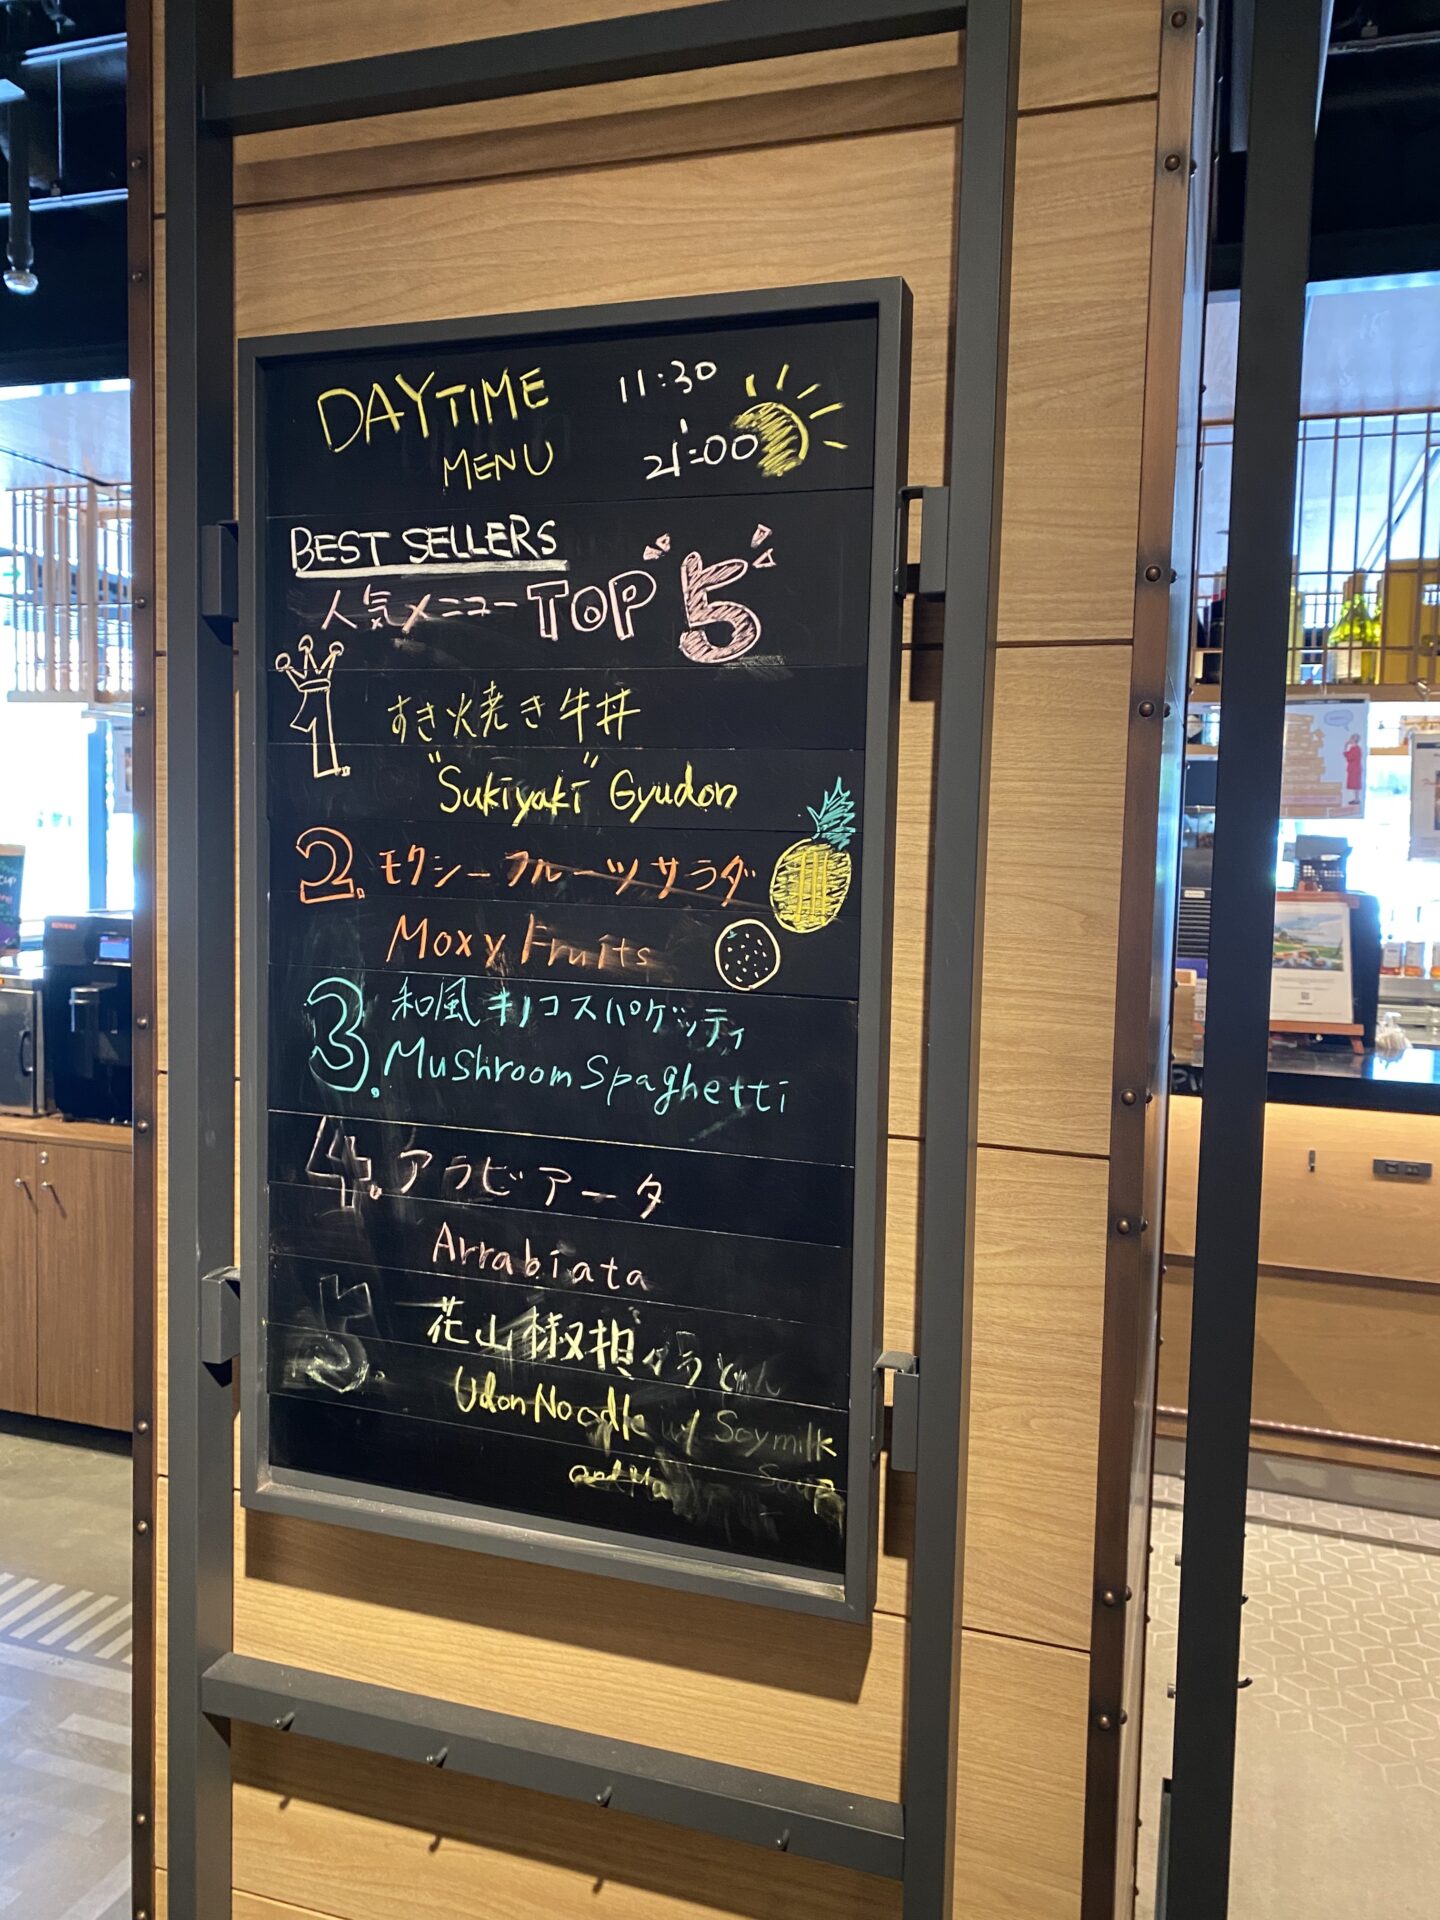 DAYTIME
MENU
11:30
21:00
BEST SELLERS
人気メニュー TOP 5
1.
すき焼き牛丼
"Sukiyaki" Gyudon
2. モクシーフルーツサラダ
Moxy Fruits
3. 和風キノコスパゲッティ
Mushroom Spaghetti
4. アラビアータ
Arrabiata
5.
花山椒担々
Udon Noodle w/ Soymilk
and Soup